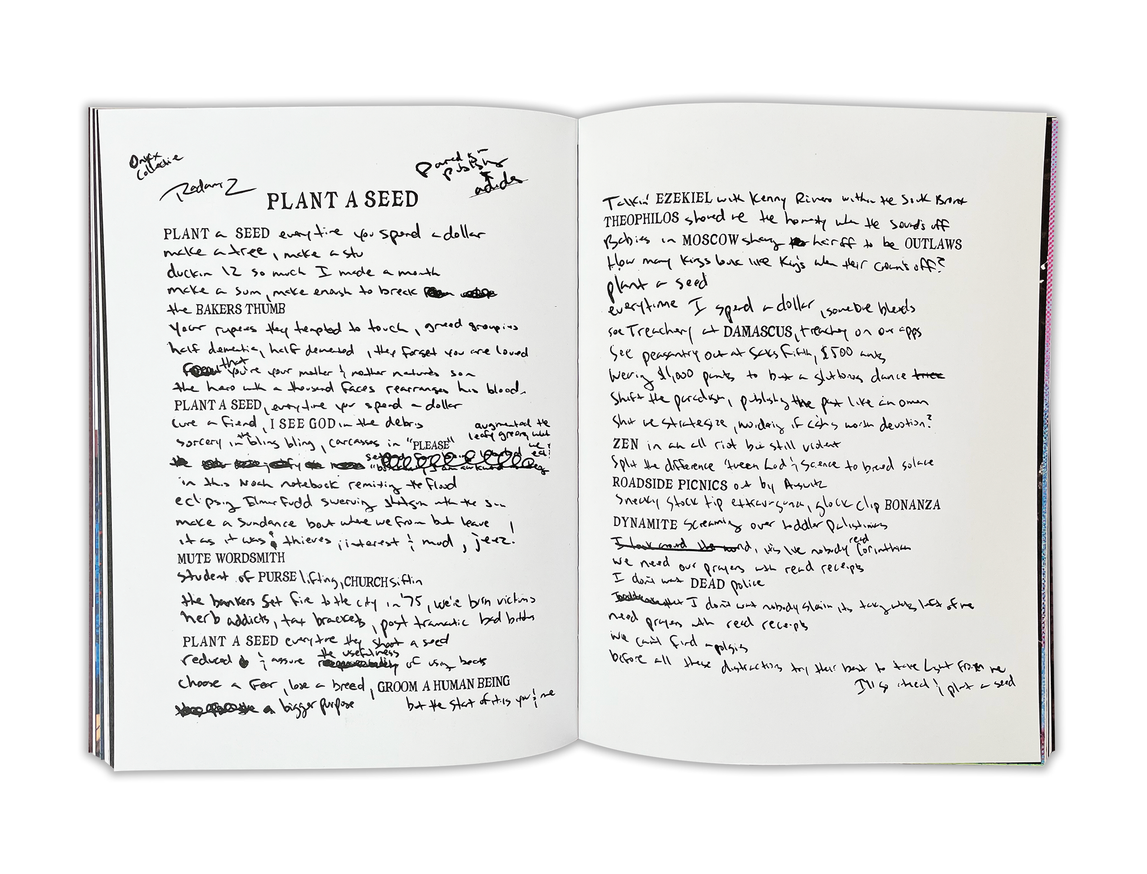 Onyx
Collective
PLANT A SEED
adidas
PLANT a SEED everytime you spend a dollar
make a tree, make a stu
duckin 12 so much I made a month
make a sum, make enough to break
the BAKERS THUMB
Your rupees they tempted to touch, greed groupies
half dementia, half demented, they forget you are loved
that you're your mother & mother nature's son
the hero with a thousand faces rearranges his blood.
PLANT A SEED, everytime you spend a dollar
cure a fiend, I SEE GOD in the debris
augmented the
leafy greens, what
sorcery in the bling bling, carcasses in "PLEASE"
we eat
in this Noah notebook remixing the flood
eclipsing Elmer Fudd swerving shotgun with the sun
make a sundance bout where we from but leave
it as it was & thieves, interest & mud, jeez.
MUTE WORDSMITH
student of PURSE lifting, CHURCH siftin
the bankers set fire to the city in '75, we're burn victims
herb addicts, tax brackets, post tramatic bad habits
PLANT A SEED everytime they shoot a seed
the usefulness
reduced & assure of using beats
choose a , lose a breed, GROOM A HUMAN BEING
a bigger purpose
but the start of it is you & me
Talkin' EZEKIEL with Kenny Rivero within the South Bronx
THEOPHILOS showed me the honesty when the sound's off
Babies in MOSCOW hair off to be OUTLAWS
How many Kings look like Kings when their crown's off?
plant a seed
everytime I spend a dollar, somebody bleeds
see Treachery at DAMASCUS, treachery on our apps
See peasantry out at Saks Fifth, $500
$1,000 pants to bust a dance
Shift the paradigm, publishing the past like an omen
Shit we strategize, wonderin if cash's worth devotion?
ZEN in an all riot but still violent
Split the difference 'tween God & Science to breed solace
ROADSIDE PICNICS out by
Sneaky stock tip extravaganza, glock clip BONANZA
DYNAMITE screaming over toddler Palestinians
I look around the world, it's like nobody read Corinthian
we need our prayers with read receipts
I don't want DEAD police
I don't want nobody slain its taking whats left of me
need prayers with read receipts
We can't find apologies
before all these distractions try their best to take light from me
I'll go ahead & plant a seed